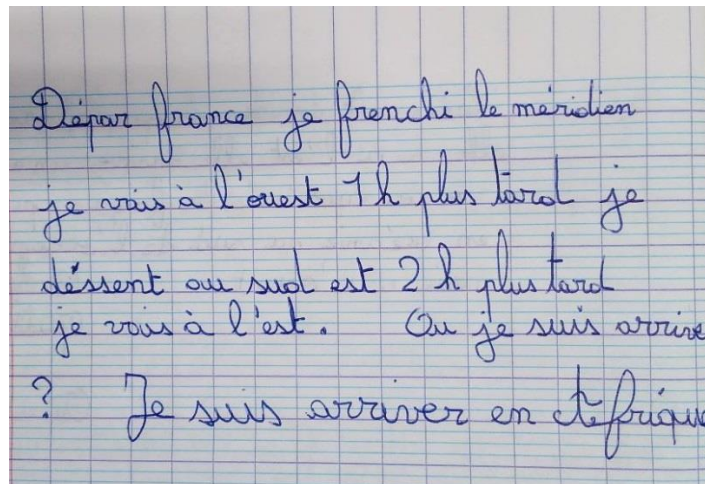 Dépar france je frenchi le méridien
je vais à l'ouest 1h plus tard je
déssent au sud est 2h plus tard
je vais à l'est. Ou je suis arrive
? Je suis arriver en Afrique